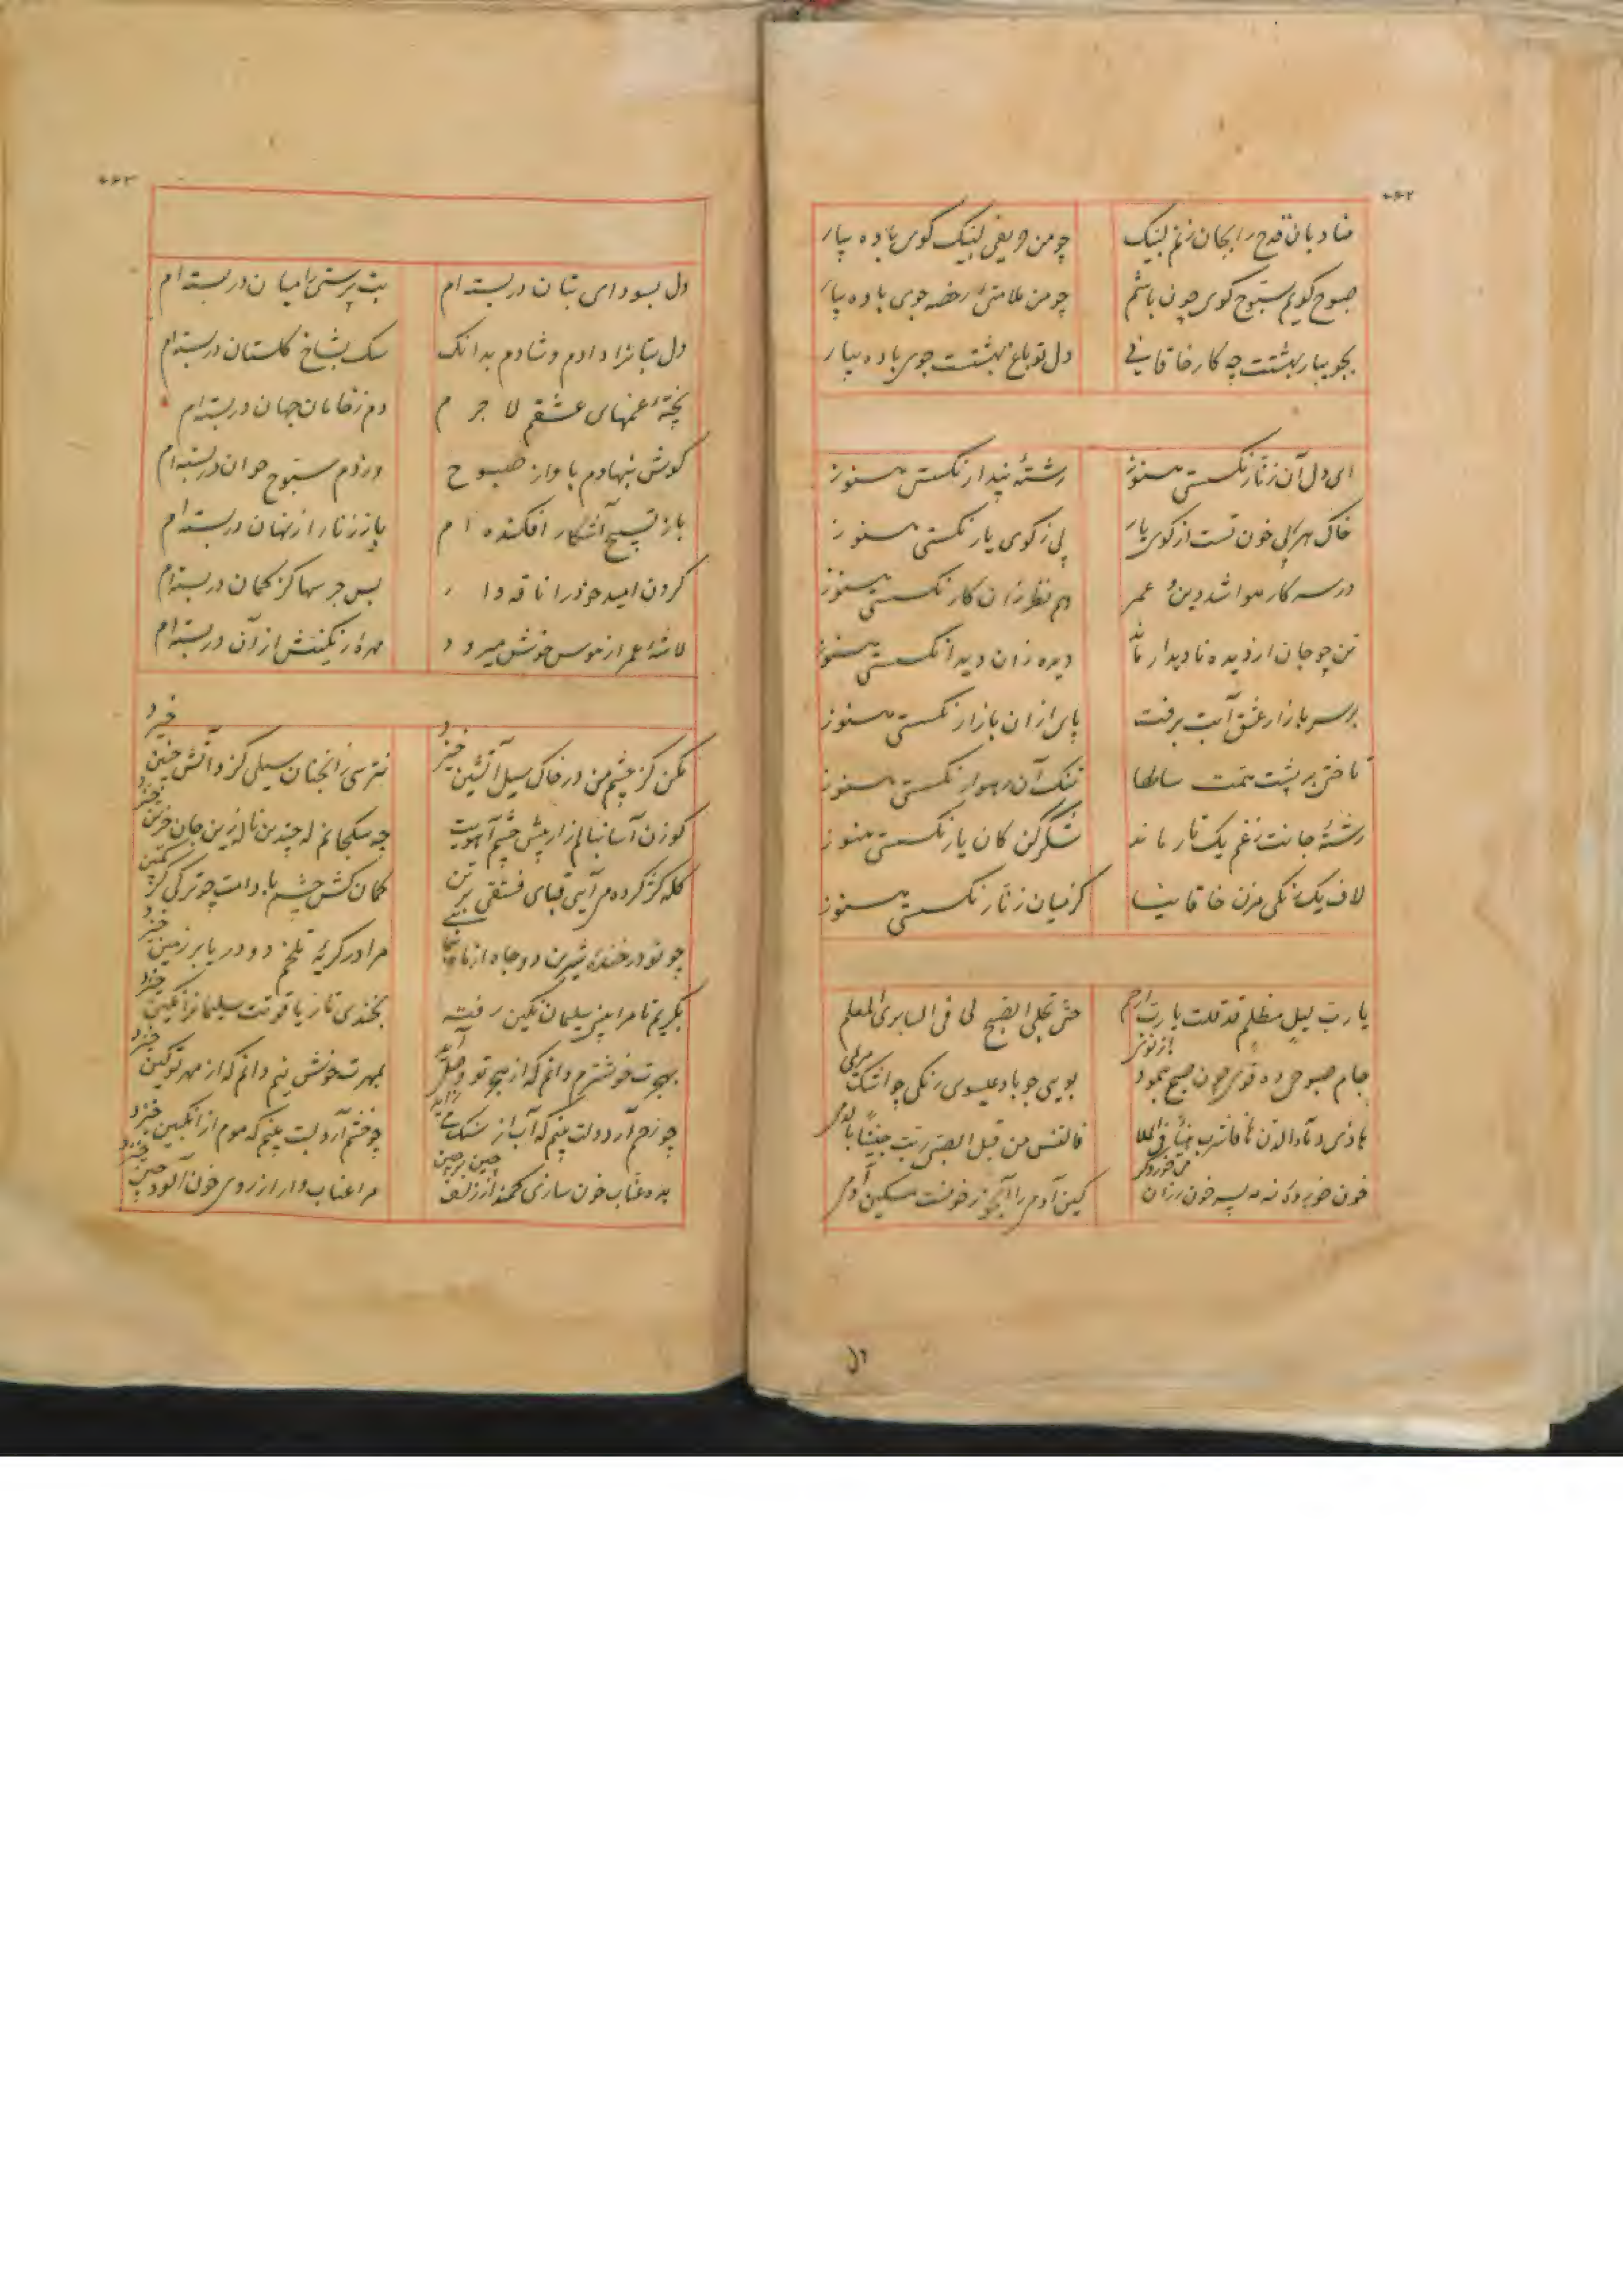 ۴۶۲
منادیان قدح را بجان زنم لبیک چو من حریفی لبیک کوی باده بیار
صبوح کویم سبوح کوی چون باشم چو من ملامتی رخصه جوی باده بیار
بجویبار بهشتت چه کار خاقانی دل تو باغ بهشتست جوی باده بیار
ای دل آن زنار نکسستی هنوز رشتهٔ پندار نکسستی هنوز
خاک هر پی خون تست از کوی یار پی ز کوی یار نکسستی هنوز
در سر کار هوا شد دین و عمر هم نظر زان کار نکسستی هنوز
تن چو جان از دیده نادیدار ماند دیده زان دیدار نکسستی هنوز
بر سر بازار عشق آبت برفت پای ازان بازار نکسستی هنوز
تاختی بر پشت همت سالها تنک آن رهوار نکسستی هنوز
رشتهٔ جانت ز غم یک تار ماند شکر کن کان یار نکسستی هنوز
لاف یکرنکی مزن خاقانیا کز میان زنار نکسستی هنوز
یا رب لیل مظلم قد قلت یا رب ارحم حتی تجلی الصبح لی فی السابری المعلم
جام صبوحی ده قوی چون صبح بنمود از نوی بویی چو باد عیسوی رنکی چو اشک مریمی
خون خوردهٔ نه مه بسه خون رزان می خور دکر کین آدمی را آبخور ز خونست مسکین آدمی
۴۶۳
دل بسودای بتان در بسته ام بت پرستی را میان در بسته ام
دل بتانرا دادم و شادم بدانک سک بشاخ کلستان در بسته ام
پختهٔ غمهای عشقم لا جرم دم ز خامان جهان در بسته ام
کوش بنهادم باواز صبوح در ز دم سبوح خوان در بسته ام
باز تسبیح آشکار افکنده ام باز زنار از نهان در بسته ام
کردن امید خود را ناقه وار بس جرسها کز کمان در بسته ام
لاشهٔ عمر از هوس خوش میرود مهرهٔ رنکینش از آن در بسته ام
مکن کز چشم من در خاک سیل آتشین خیزد نترسی زانچنان سیلی کزو آتش چنین خیزد
کوزن آسا بنالم زار پیش چشم آهویت چه سکجانم که چندین ناله زین جان حزین خیزد
کله کژ کرده می آیی قبای فستقی بر تن کمان کش چشم بادامت چو ترکی کز کمین خیزد
مرا در کریهٔ تلخم دو دریا بر زمین خیزد
بکریم تا مرا بینی سلیمان نکین رفته بخندی تا ز یاقوتت سلیمانرا نکین خیزد
بهجرت خوشترم دانم که از هجر تو وصل آید بمهرت خوش نیم دانم که از مهر تو کین خیزد
چو زخم آرد دلت بینم که آب از سنک می زاید چو خشم آرد لبت بینم که موم از انکبین خیزد